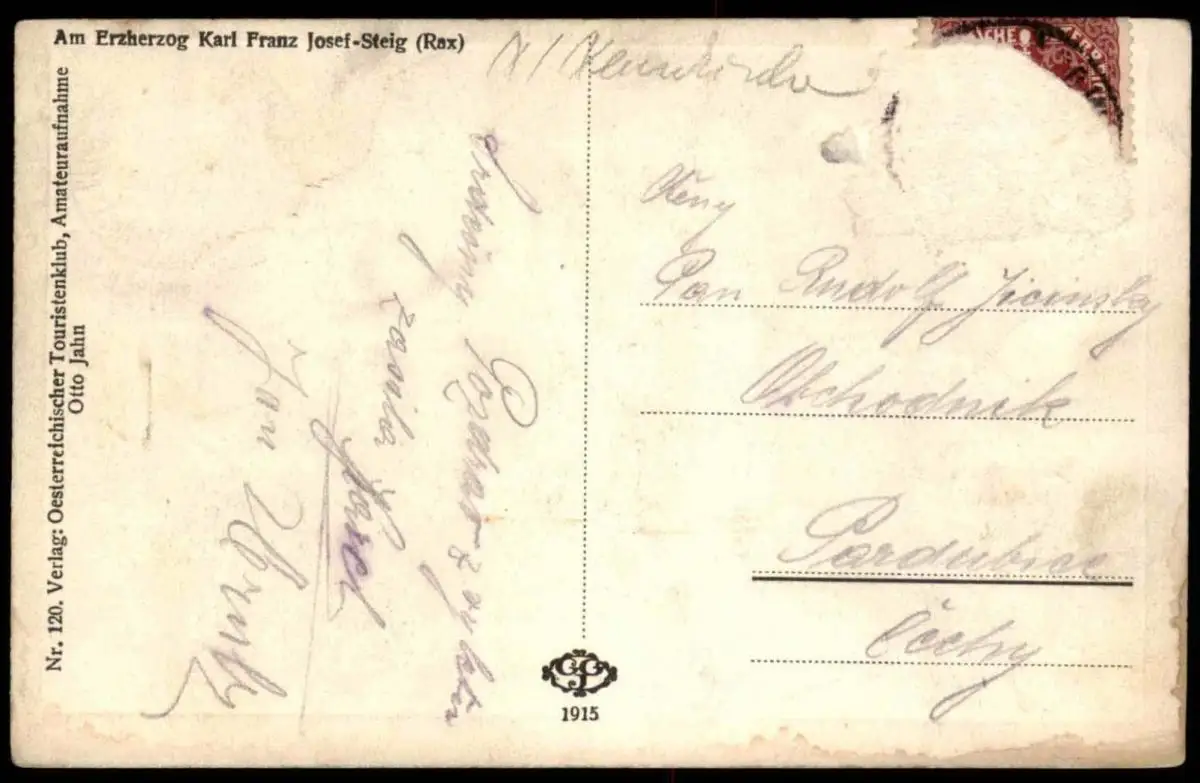 Am Erzherzog Karl Franz Josef-Steig (Rax)
Nr. 120. Verlag: Oesterreichischer Touristenklub, Amateuraufnahme
Otto Jahn
Srdečný Pozdrav z výletu
Karel
Jan
Pan Rudolf Jicinsky
Obchodnik
Pardubice
Čechy
1915